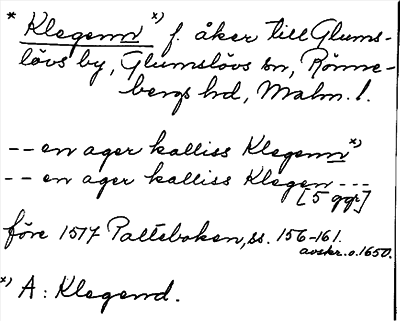 * Klegenn x) f. åker till Glums-
lövs by, Glumslövs sn, Rönne-
bergs hd, Malm. l.
-- en ager kalliss Klegenn x)
-- en ager kalliss Klegen ---
[5 ggr]
före 1517 Palteboken, ss. 156-161.
avskr. o. 1650.
x) A: Klegend.